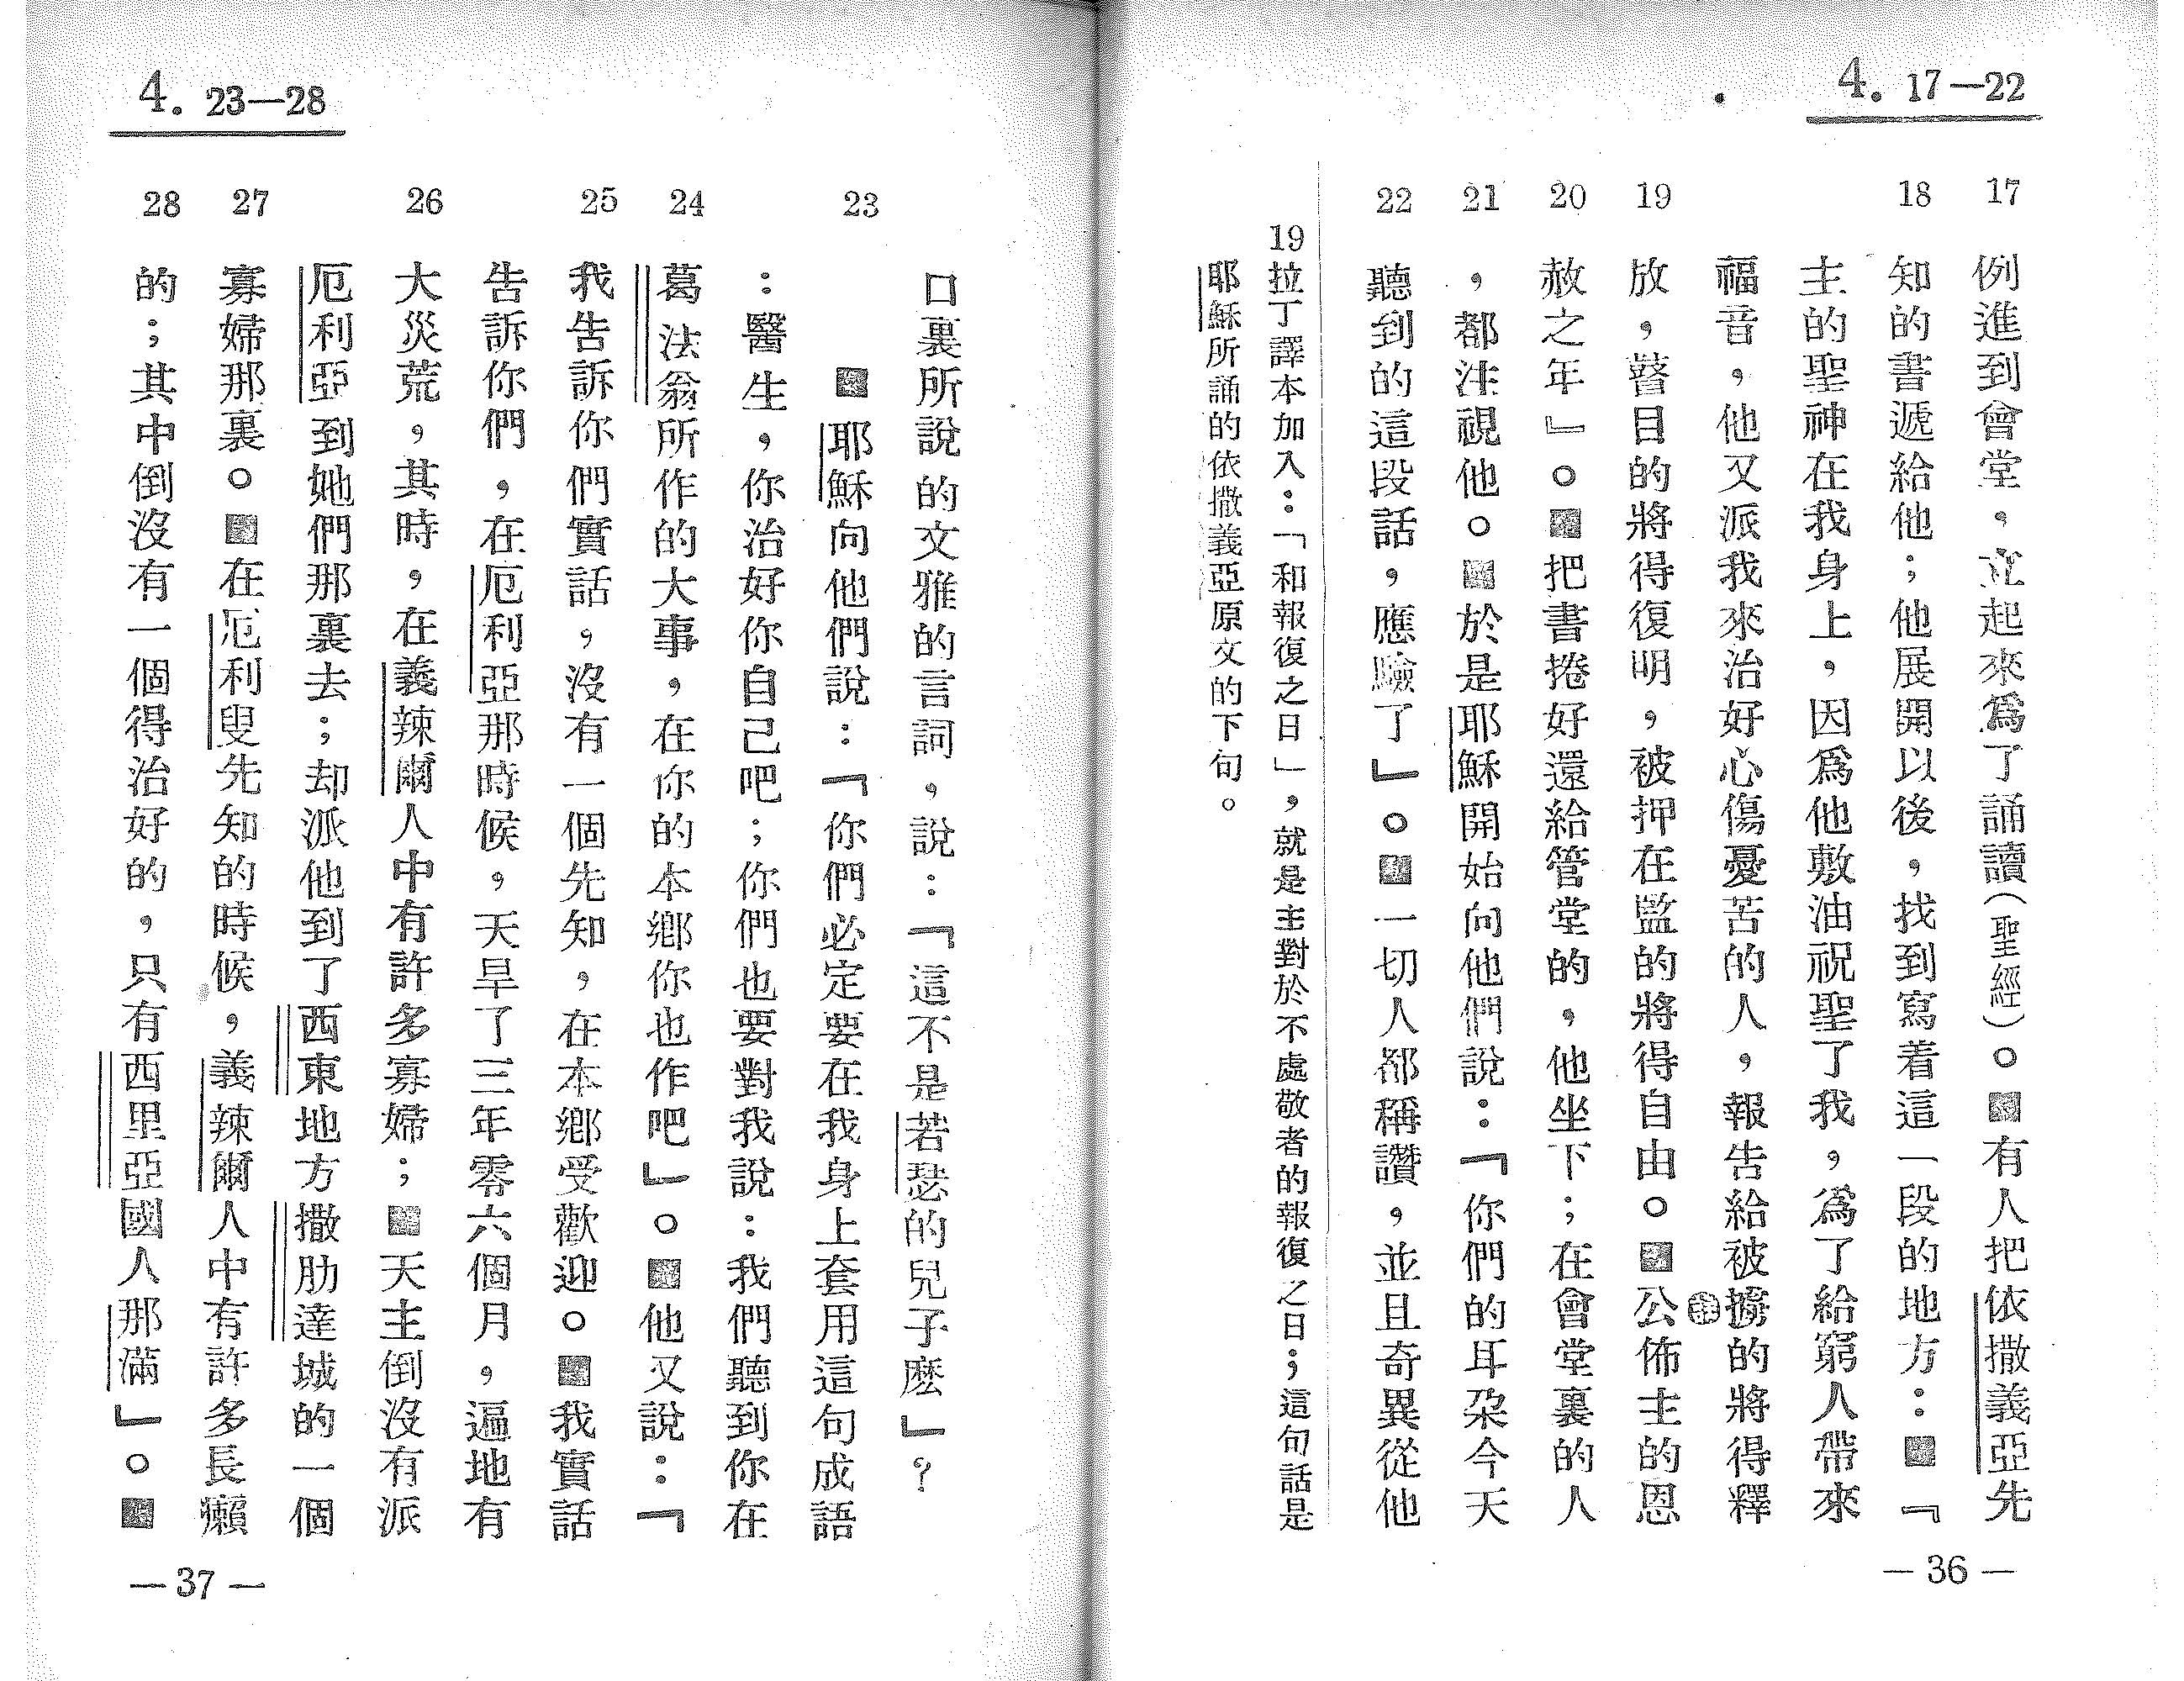 4. 17—22
17
例進到會堂，立起來爲了誦讀(聖經)。▩有人把依撒義亞先
18
知的書遞給他；他展開以後，找到寫着這一段的地方：▩『
主的聖神在我身上，因爲他敷油祝聖了我，爲了給窮人帶來
福音，他又派我來治好心傷憂苦的人，報告給被擄的將得釋
19
放，瞽目的將得復明，被押在監的將得自由。▩公佈主的恩
20
赦之年』。▩把書捲好還給管堂的，他坐下；在會堂裏的人
21
，都注視他。▩於是耶穌開始向他們說：『你們的耳朶今天
22
聽到的這段話，應驗了』。▩一切人都稱讚，並且奇異從他
19拉丁譯本加入：「和報復之日」，就是主對於不處敬者的報復之日；這句話是
耶穌所誦的依撒義亞原文的下句。
—36—
4. 23—28
口裏所說的文雅的言詞，說：『這不是若瑟的兒子麽』？
23
▩耶穌向他們說：『你們必定要在我身上套用這句成語
：醫生，你治好你自己吧；你們也要對我說：我們聽到你在
24
葛法翁所作的大事，在你的本鄉你也作吧』。▩他又說：『
25
我告訴你們實話，沒有一個先知，在本鄉受歡迎。▩我實話
告訴你們，在厄利亞那時候，天旱了三年零六個月，遍地有
26
大災荒，其時，在義辣爾人中有許多寡婦；▩天主倒沒有派
厄利亞到她們那裏去；却派他到了西東地方撒肋達城的一個
27
寡婦那裏。▩在厄利叟先知的時候，義辣爾人中有許多長癩
28
的；其中倒沒有一個得治好的，只有西里亞國人那滿』。▩
—37—